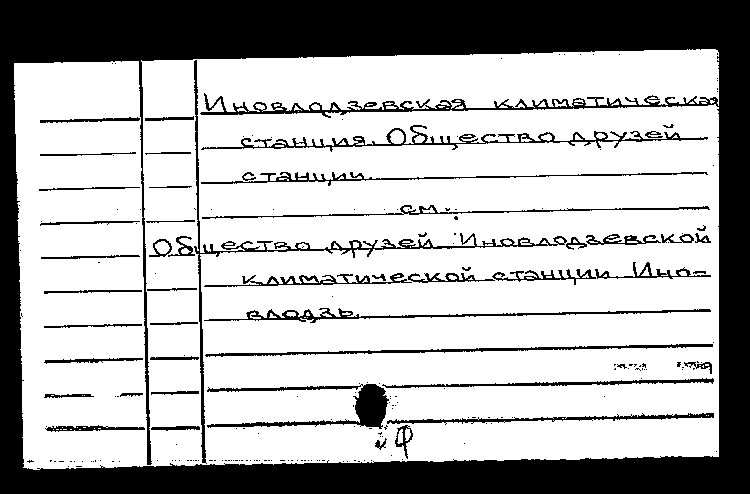 Иновлодзевская климатическая
станция. Общество друзей
станции.
см.:
Общество друзей Иновлодзевской
климатической станции. Ино-
влодзь.